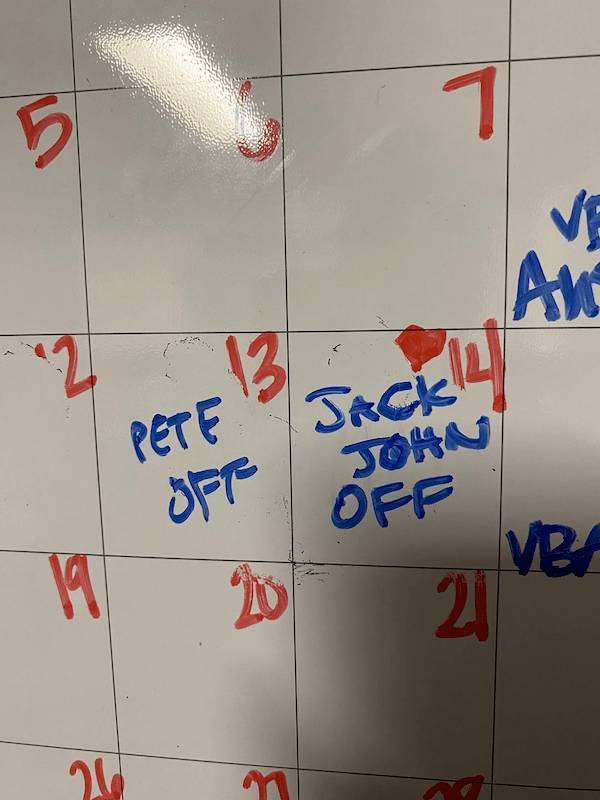 5 6 7
VB
12 13 14
PETE
OFF
JACK
JOHN
OFF
VBA
19 20 21
26 27 28